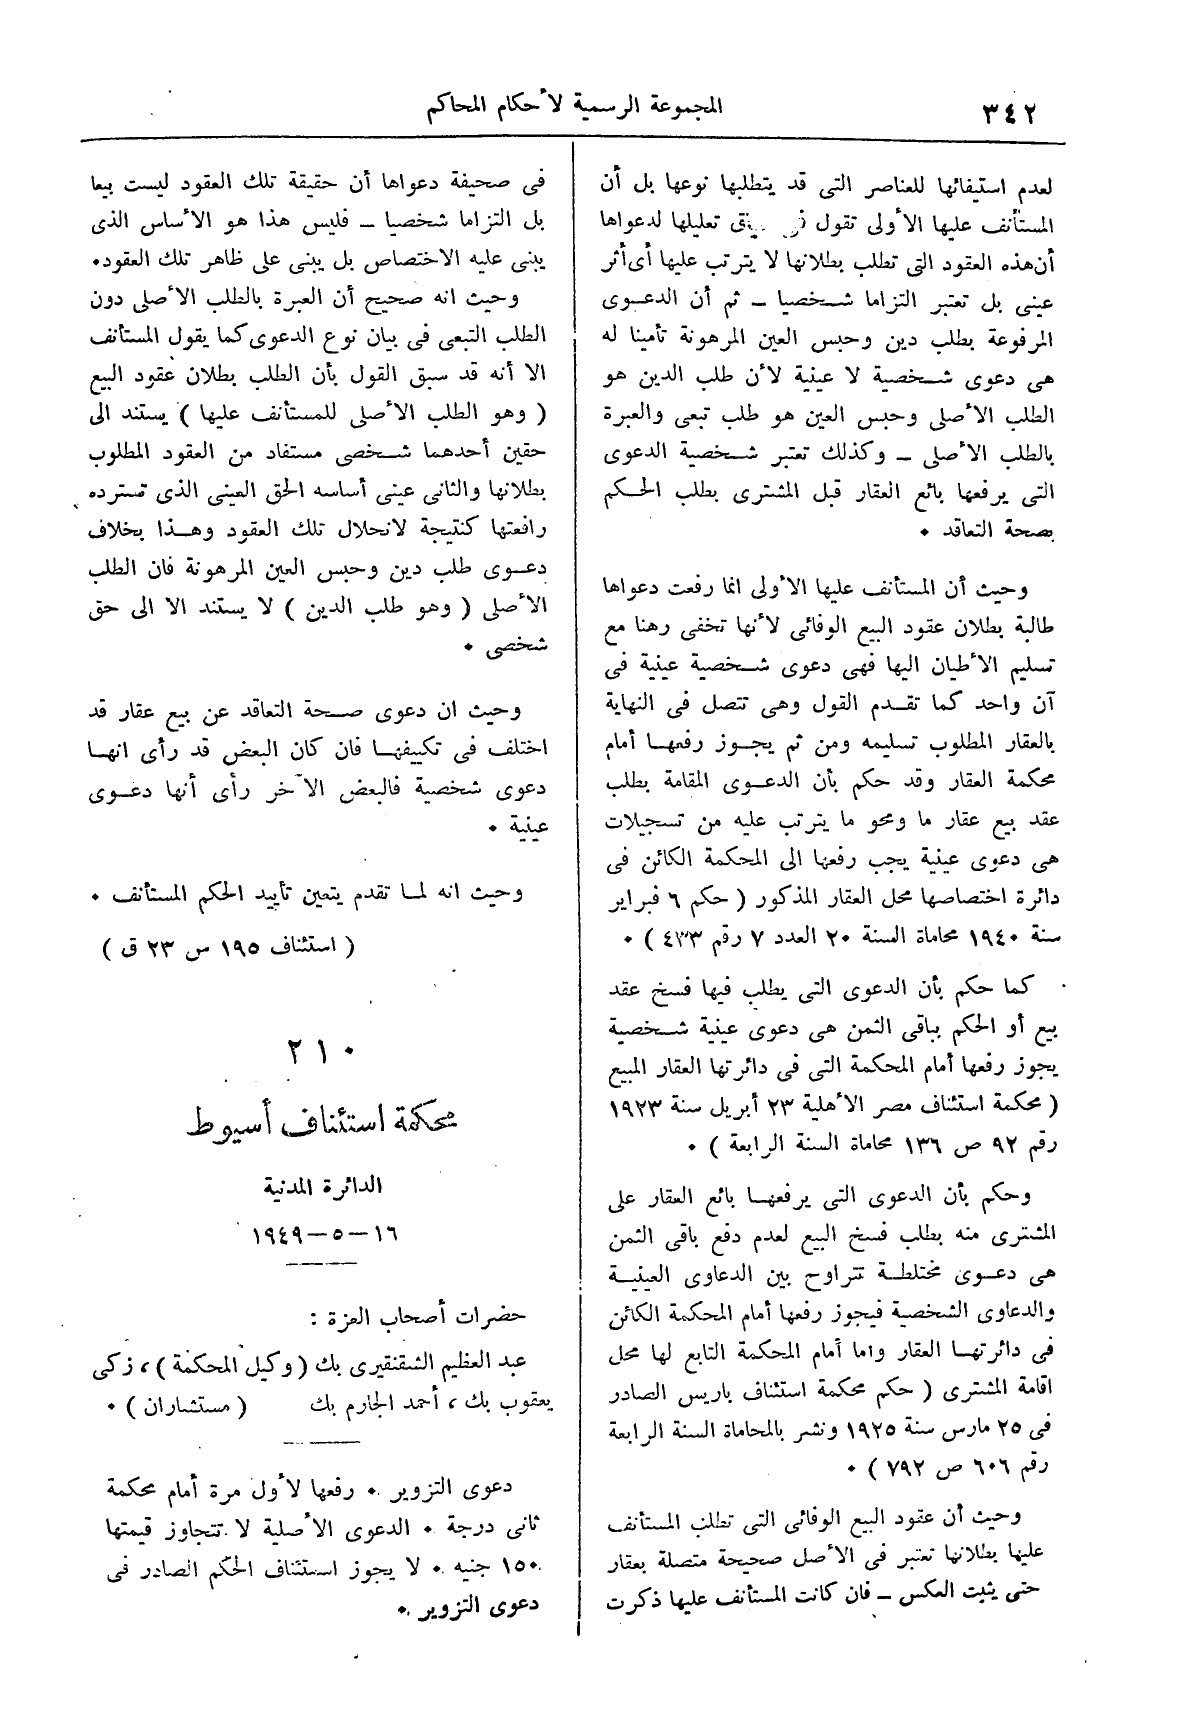 ٣٤٢
المجموعة الرسمية لأحكام المحاكم
لعدم استيفائها للعناصر التى قد يتطلبها نوعها بل أن
المستأنف عليها الأولى تقول تعليلها لدعواها
أن هذه العقود التى تطلب بطلانها لا يترتب عليها أى أثر
عينى بل تعتبر التزاما شخصيا – ثم أن الدعوى
المرفوعة بطلب دين وحبس العين المرهونة تأمينا له
هى دعوى شخصية لا عينية لأن طلب الدين هو
الطلب الأصلى وحبس العين هو طلب تبعى والعبرة
بالطلب الأصلى – وكذلك تعتبر شخصية الدعوى
التى يرفعها بائع العقار قبل المشترى بطلب الحكم
بصحة التعاقد ٠
وحيث أن المستأنف عليها الأولى انما رفعت دعواها
طالبة بطلان عقود البيع الوفائى لأنها تخفى رهنا مع
تسليم الأطيان اليها فهى دعوى شخصية عينية فى
آن واحد كما تقدم القول وهى تتصل فى النهاية
بالعقار المطلوب تسليمه ومن ثم يجوز رفعها أمام
محكمة العقار وقد حكم بأن الدعوى المقامة بطلب
عقد بيع عقار ما ومحو ما يترتب عليه من تسجيلات
هى دعوى عينية يجب رفعها الى المحكمة الكائن فى
دائرة اختصاصها محل العقار المذكور ( حكم ٦ فبراير
سنة ١٩٤٠ محاماة السنة ٢٠ العدد ٧ رقم ٤٣٣ ) ٠
كما حكم بأن الدعوى التى يطلب فيها فسخ عقد
بيع أو الحكم بباقى الثمن هى دعوى عينية شخصية
يجوز رفعها أمام المحكمة التى فى دائرتها العقار المبيع
( محكمة استئناف مصر الأهلية ٢٣ أبريل سنة ١٩٢٣
رقم ٩٢ ص ١٣٦ محاماة السنة الرابعة ) ٠
وحكم بأن الدعوى التى يرفعها بائع العقار على
المشترى منه بطلب فسخ البيع لعدم دفع باقى الثمن
هى دعوى مختلطة تتراوح بين الدعاوى العينية
والدعاوى الشخصية فيجوز رفعها أمام المحكمة الكائن
فى دائرتها العقار واما أمام المحكمة التابع لها محل
اقامة المشترى ( حكم محكمة استئناف باريس الصادر
فى ٢٥ مارس سنة ١٩٢٥ ونشر بالمحاماة السنة الرابعة
رقم ٦٠٦ ص ٧٩٢ ) ٠
وحيث أن عقود البيع الوفائى التى تطلب المستأنف
عليها بطلانها تعتبر فى الأصل صحيحة متصلة بعقار
حتى يثبت العكس – فان كانت المستأنف عليها ذكرت
فى صحيفة دعواها أن حقيقة تلك العقود ليست بيعا
بل التزاما شخصيا – فليس هذا هو الأساس الذى
يبنى عليه الاختصاص بل يبنى على ظاهر تلك العقود٠
وحيث انه صحيح أن العبرة بالطلب الأصلى دون
الطلب التبعى فى بيان نوع الدعوى كما يقول المستأنف
الا أنه قد سبق القول بأن الطلب بطلان عقود البيع
( وهو الطلب الأصلى للمستأنف عليها ) يستند الى
حقين أحدهما شخصى مستفاد من العقود المطلوب
بطلانها والثانى عينى أساسه الحق العينى الذى تسترده
رافعتها كنتيجة لانحلال تلك العقود وهذا بخلاف
دعوى طلب دين وحبس العين المرهونة فان الطلب
الأصلى ( وهو طلب الدين ) لا يستند الا الى حق
شخصى ٠
وحيث ان دعوى صحة التعاقد عن بيع عقار قد
اختلف فى تكييفها فان كان البعض قد رأى انها
دعوى شخصية فالبعض الآخر رأى أنها دعوى
عينية ٠
وحيث انه لما تقدم يتعين تأييد الحكم المستأنف ٠
( استئناف ١٩٥ س ٢٣ ق )
٢١٠
محكمة استئناف أسيوط
الدائرة المدنية
١٦–٥–١٩٤٩
حضرات أصحاب العزة :
عبد العظيم الشقنقيرى بك ( وكيل المحكمة ) ، زكى
يعقوب بك ، أحمد الجارم بك ( مستشاران ) ٠
دعوى التزوير ٠ رفعها لأول مرة أمام محكمة
ثانى درجة ٠ الدعوى الأصلية لا تتجاوز قيمتها
١٥٠ جنيه ٠ لا يجوز استئناف الحكم الصادر فى
دعوى التزوير ٠